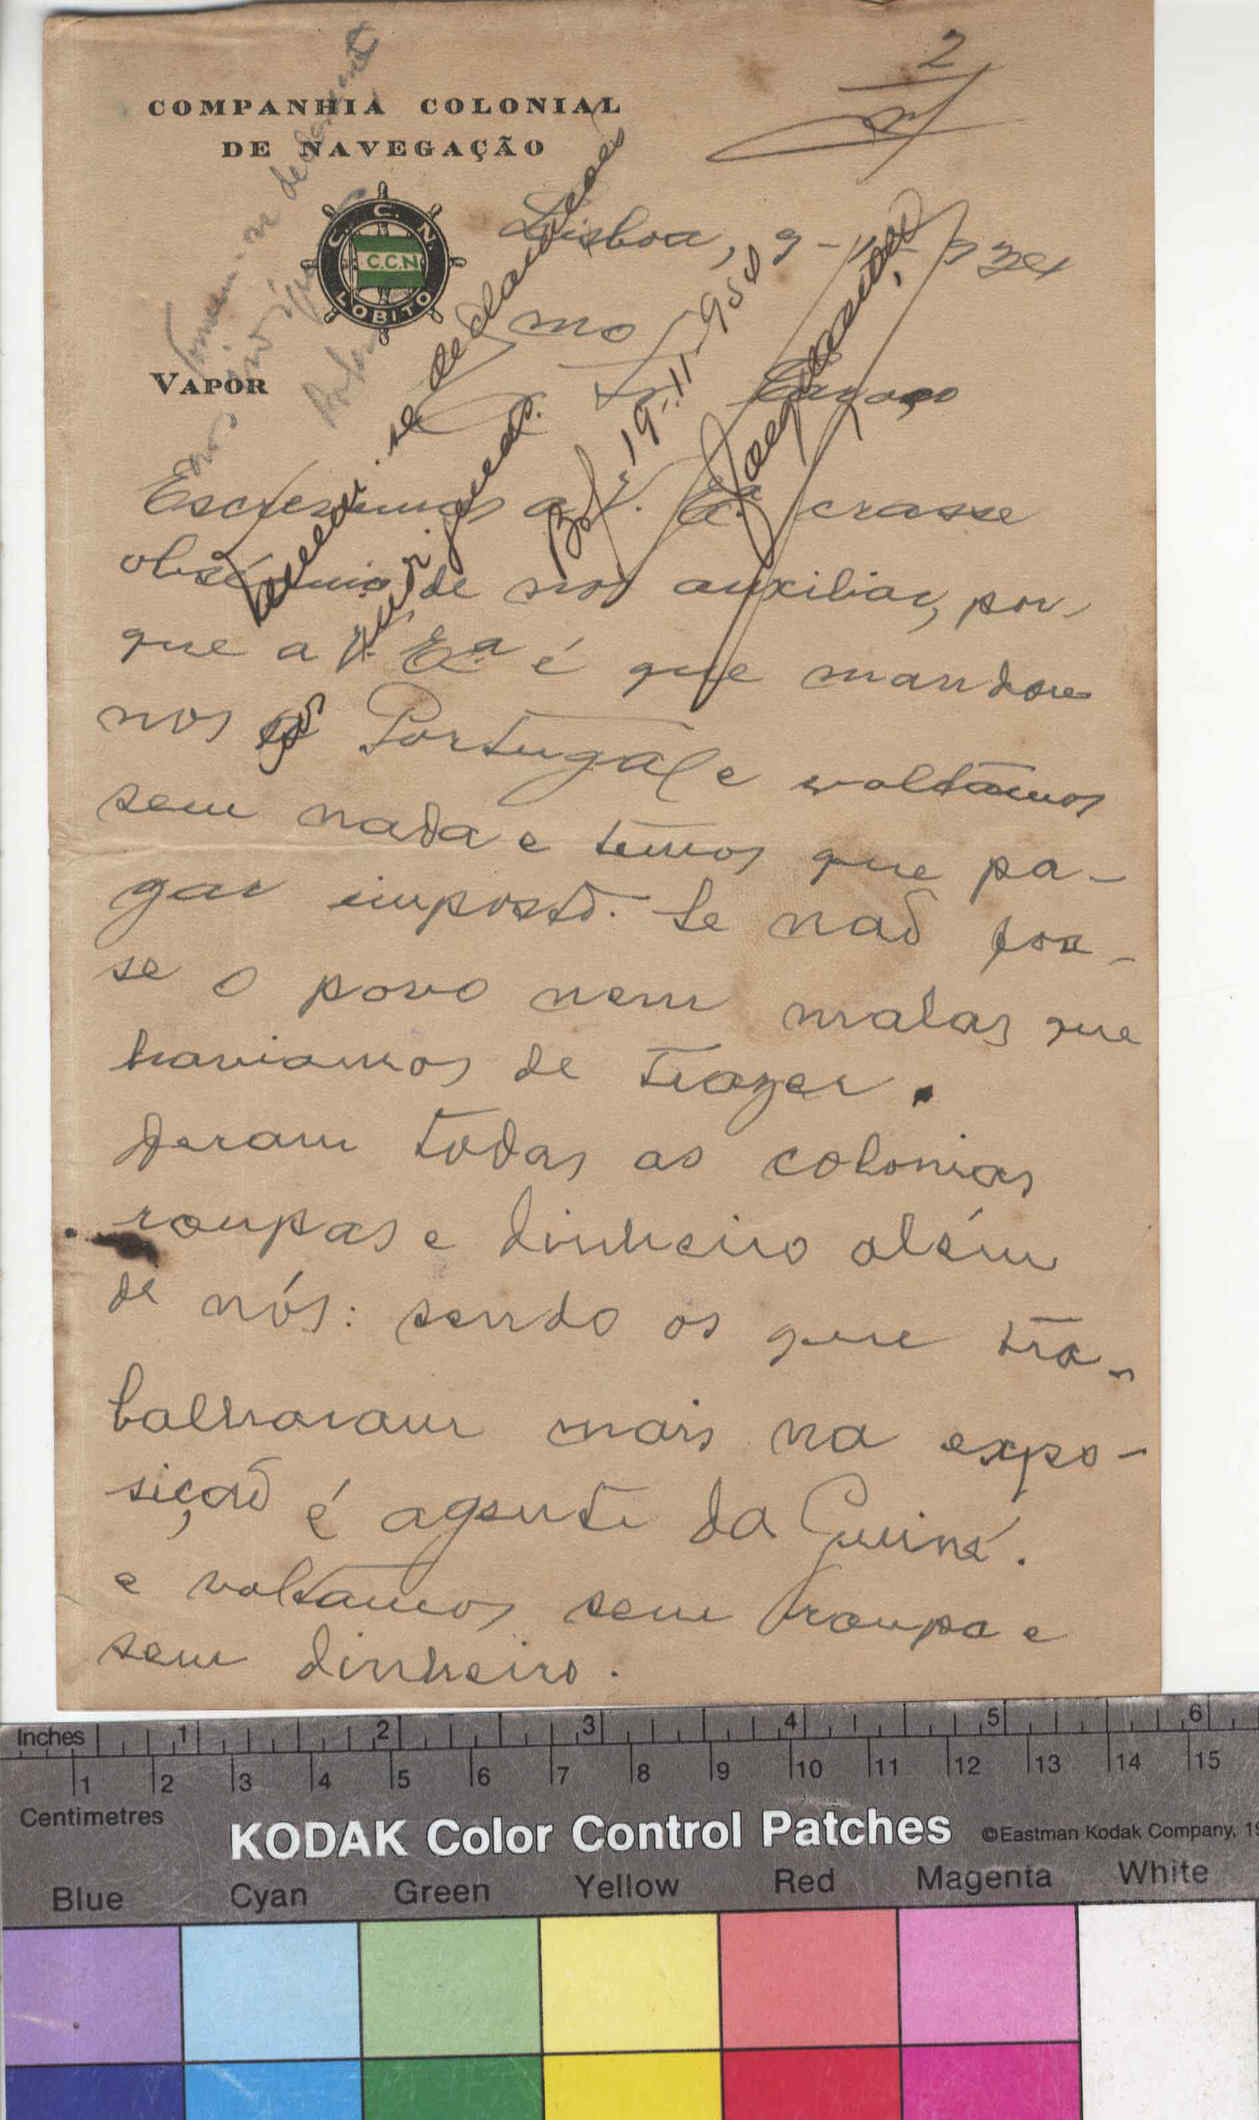 2
COMPANHIA COLONIAL
DE NAVEGAÇÃO
C. C. N.
C.C.N
LOBITO
VAPOR
Lisboa, 9-11-934
Exmo Sr.
19-11-934
Escrevemos a V. Exª. crasse
obséquio de nos auxiliar, por-
que a V. Exª é que mandou
nos a Portugal e voltámos
sem nada e temos que pa-
gar imposto. Se não fos-
se o povo nem malas que
haviamos de trazer.
Deram todas as colonias
roupas e dinheiro além
de nós: sendo os que tra-
balharam mais na expo-
sição é a gente da Guiné.
e voltámos sem roupa e
sem dinheiro.
Inches 1 2 3 4 5 6
1 2 3 4 5 6 7 8 9 10 11 12 13 14 15
Centimetres
KODAK Color Control Patches ©Eastman Kodak Company, 19
Blue Cyan Green Yellow Red Magenta White